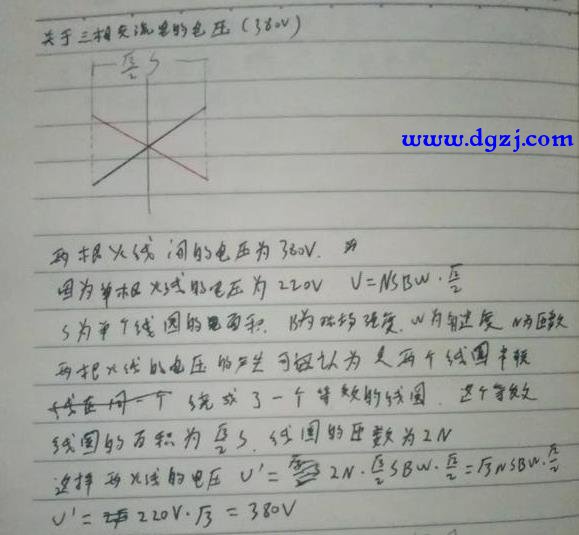 关于三相交流电的电压(380V)
√3/2 S
www.dgzj.com
两根火线间的电压为380V.
因为单根火线的电压为220V U=NSBW·√2/2
S为单个线圈的面积. B为磁场强度. W为角速度 N为匝数
两根火线的电压的产生可以认为是两个线圈串联
绕成了一个等效的线圈. 这个等效
线圈的面积为√3/2 S. 线圈的匝数为2N
这样两火线的电压 U'= 2N·√3/2 SBW·√2/2 = √3NSBW·√2/2
U'= 220V·√3 = 380V